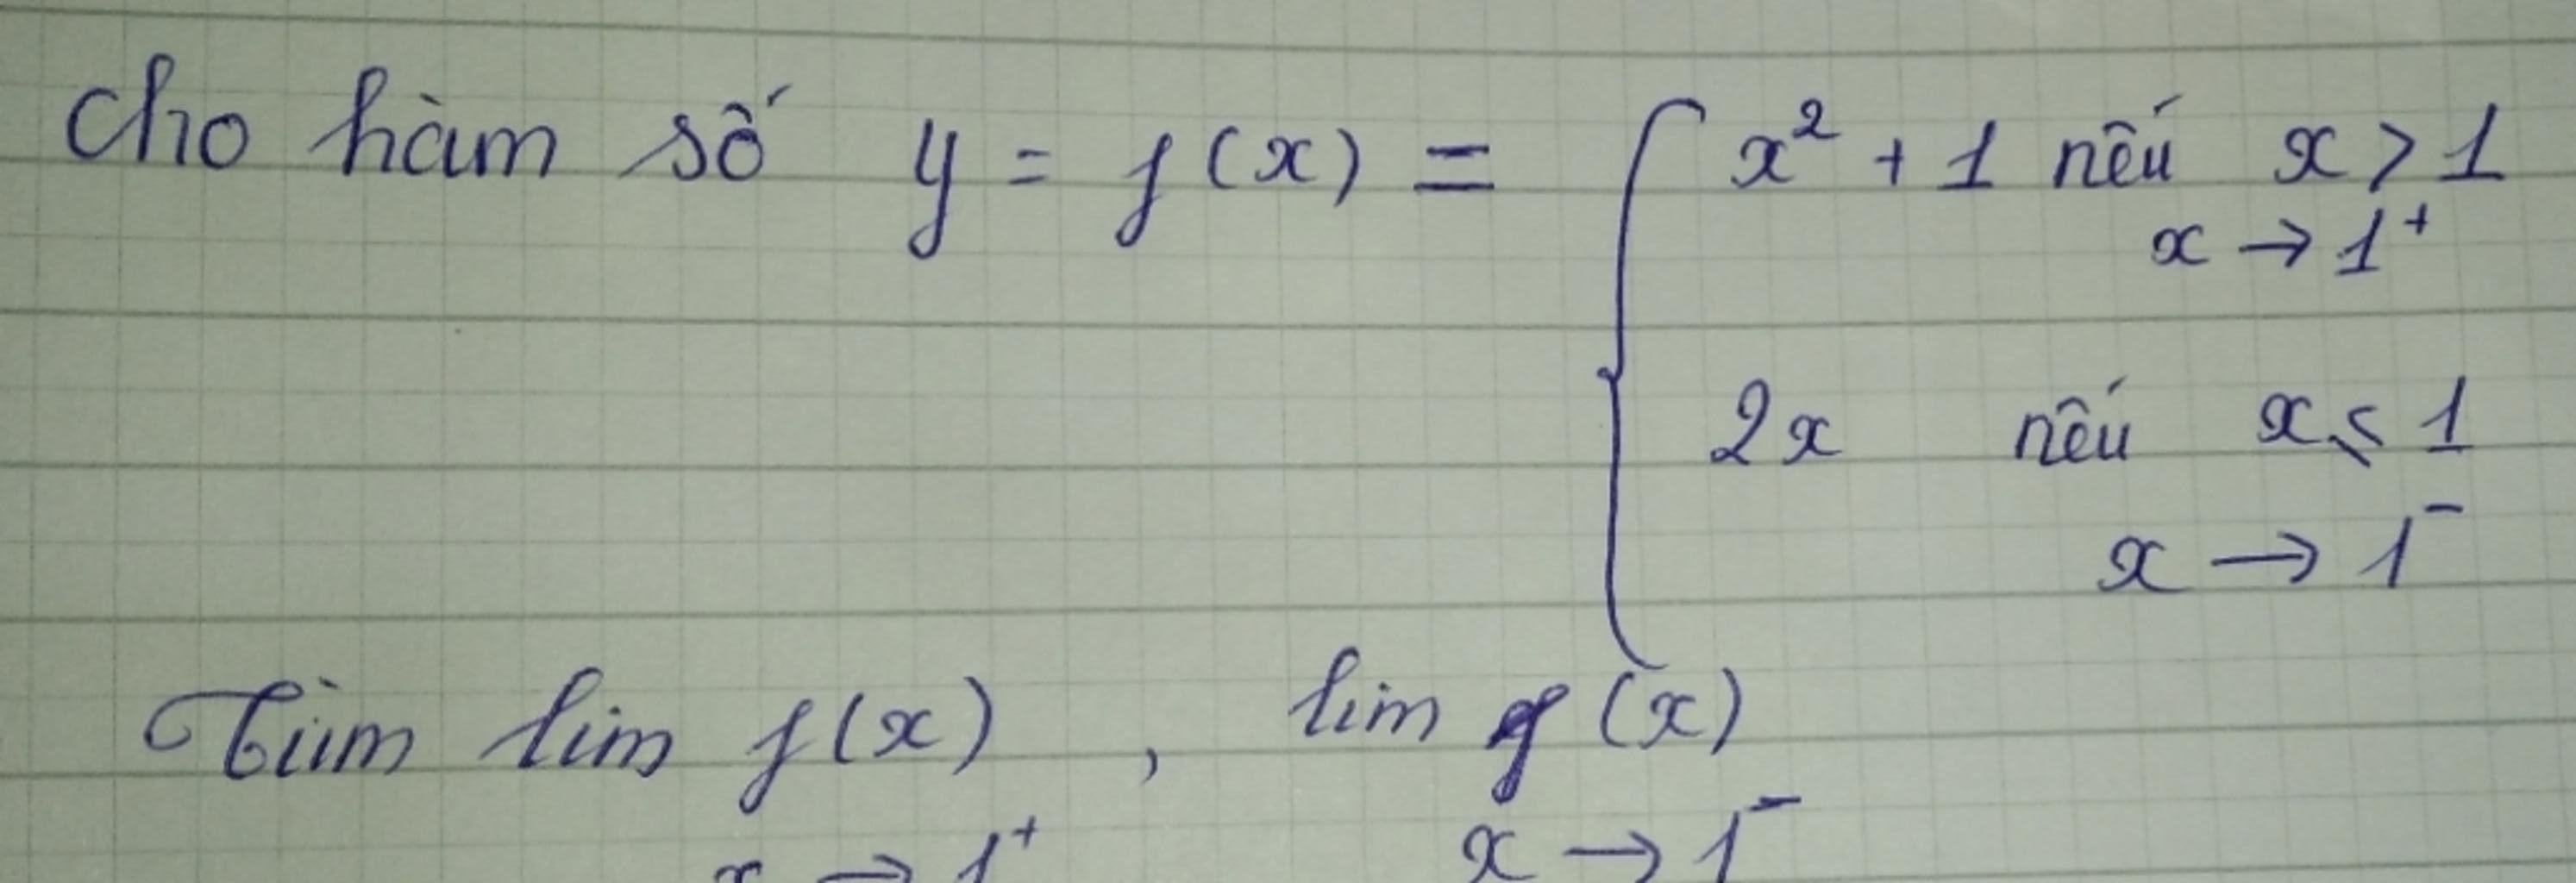 Cho hàm số y = f(x) = { x² + 1 nếu x > 1
x → 1⁺
2x nếu x ≤ 1
x → 1⁻
Tìm lim f(x) , lim f(x)
x → 1⁺ x → 1⁻